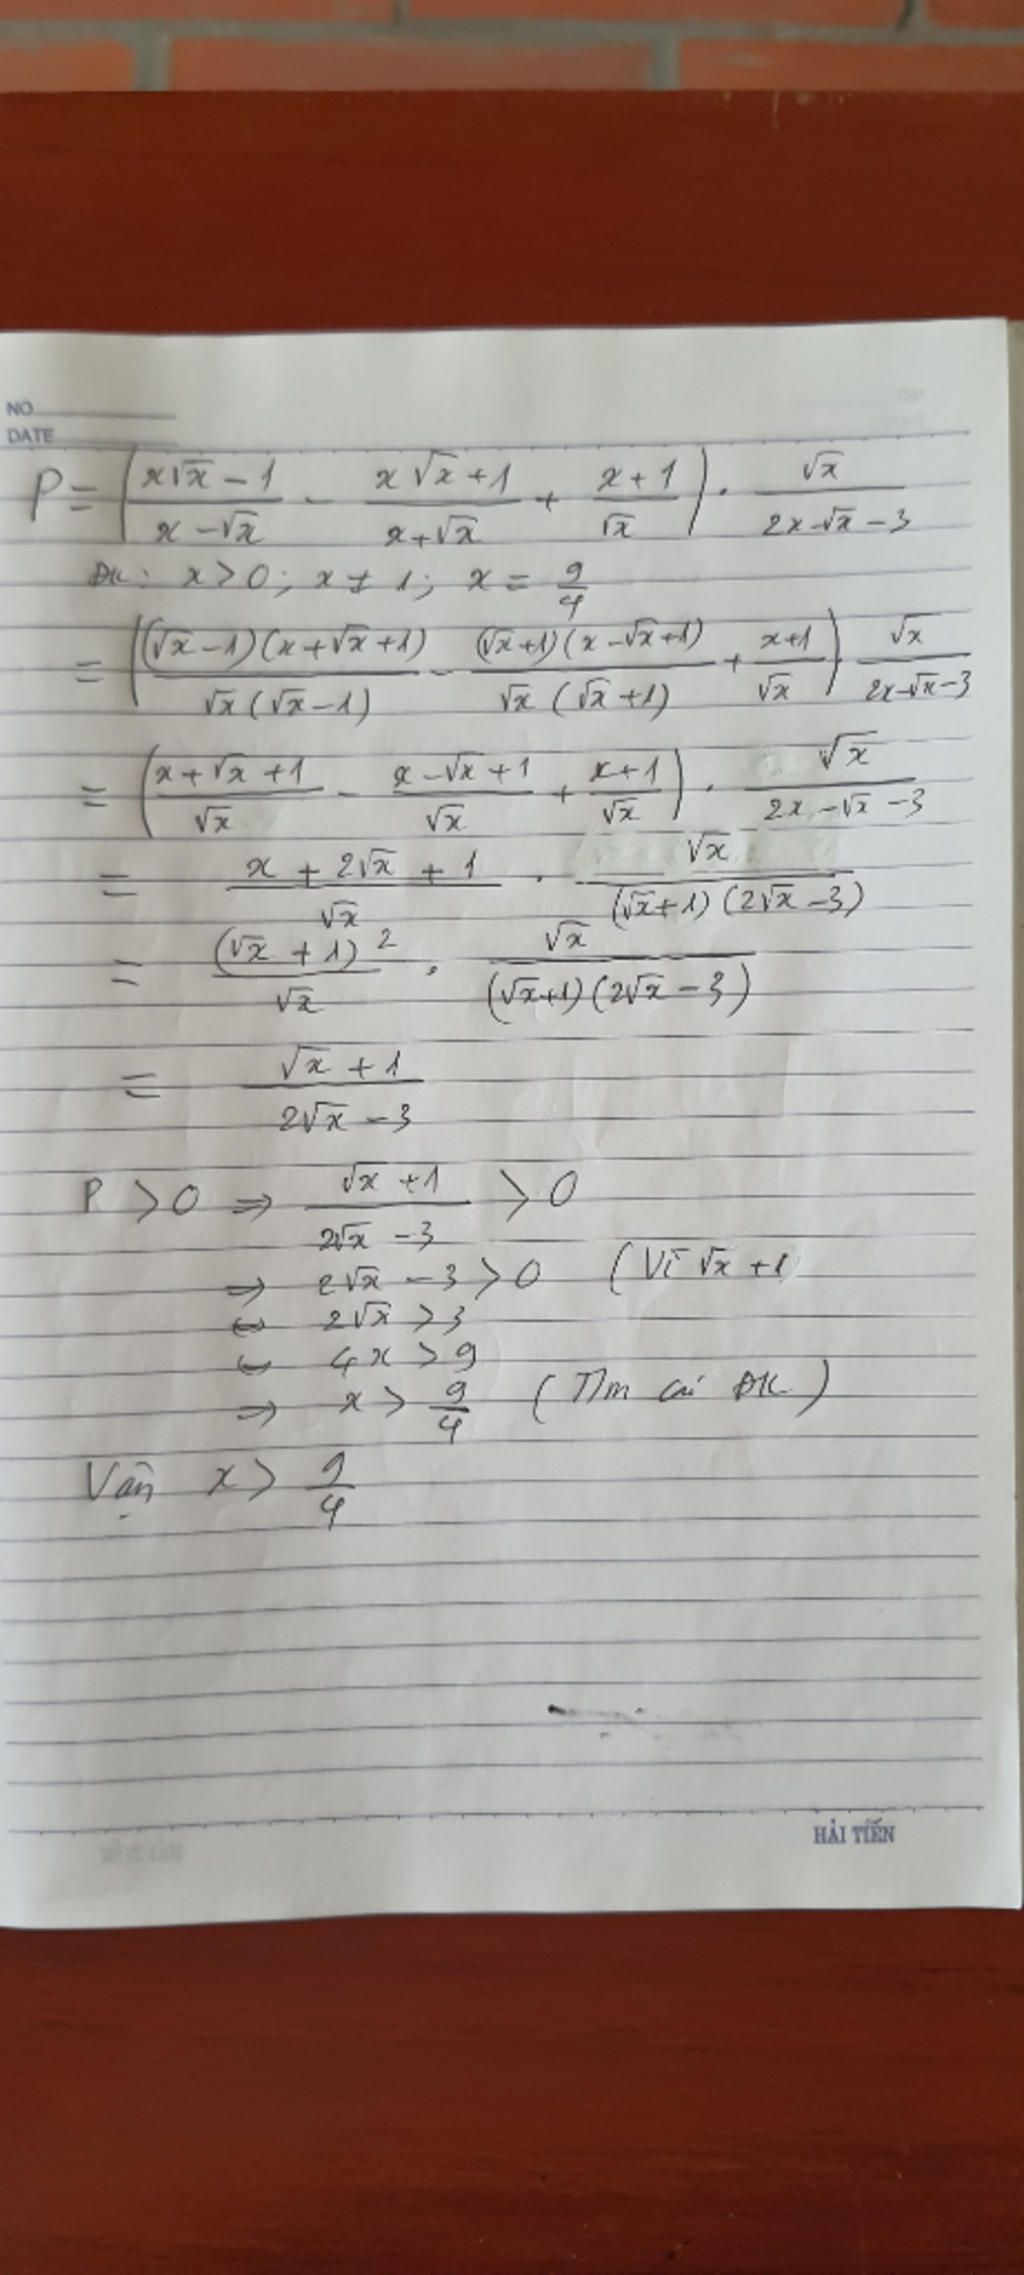 NO
DATE
P = (x√x - 1 / x - √x - x√x + 1 / x + √x + x + 1 / √x) . √x / 2x - √x - 3
ĐK: x > 0; x ≠ 1; x = 9/4
= ((√x - 1)(x + √x + 1) / √x(√x - 1) - (√x + 1)(x - √x + 1) / √x(√x + 1) + x + 1 / √x) √x / 2x - √x - 3
= (x + √x + 1 / √x - x - √x + 1 / √x + x + 1 / √x) . √x / 2x - √x - 3
= x + 2√x + 1 / √x . √x / (√x + 1)(2√x - 3)
= (√x + 1)² / √x . √x / (√x + 1)(2√x - 3)
= √x + 1 / 2√x - 3
P > 0 ⇒ √x + 1 / 2√x - 3 > 0
⇒ 2√x - 3 > 0 (Vì √x + 1
⇔ 2√x > 3
⇔ 4x > 9
⇒ x > 9/4 (Tm ĐK)
Vậy x > 9/4
HẢI TIẾN